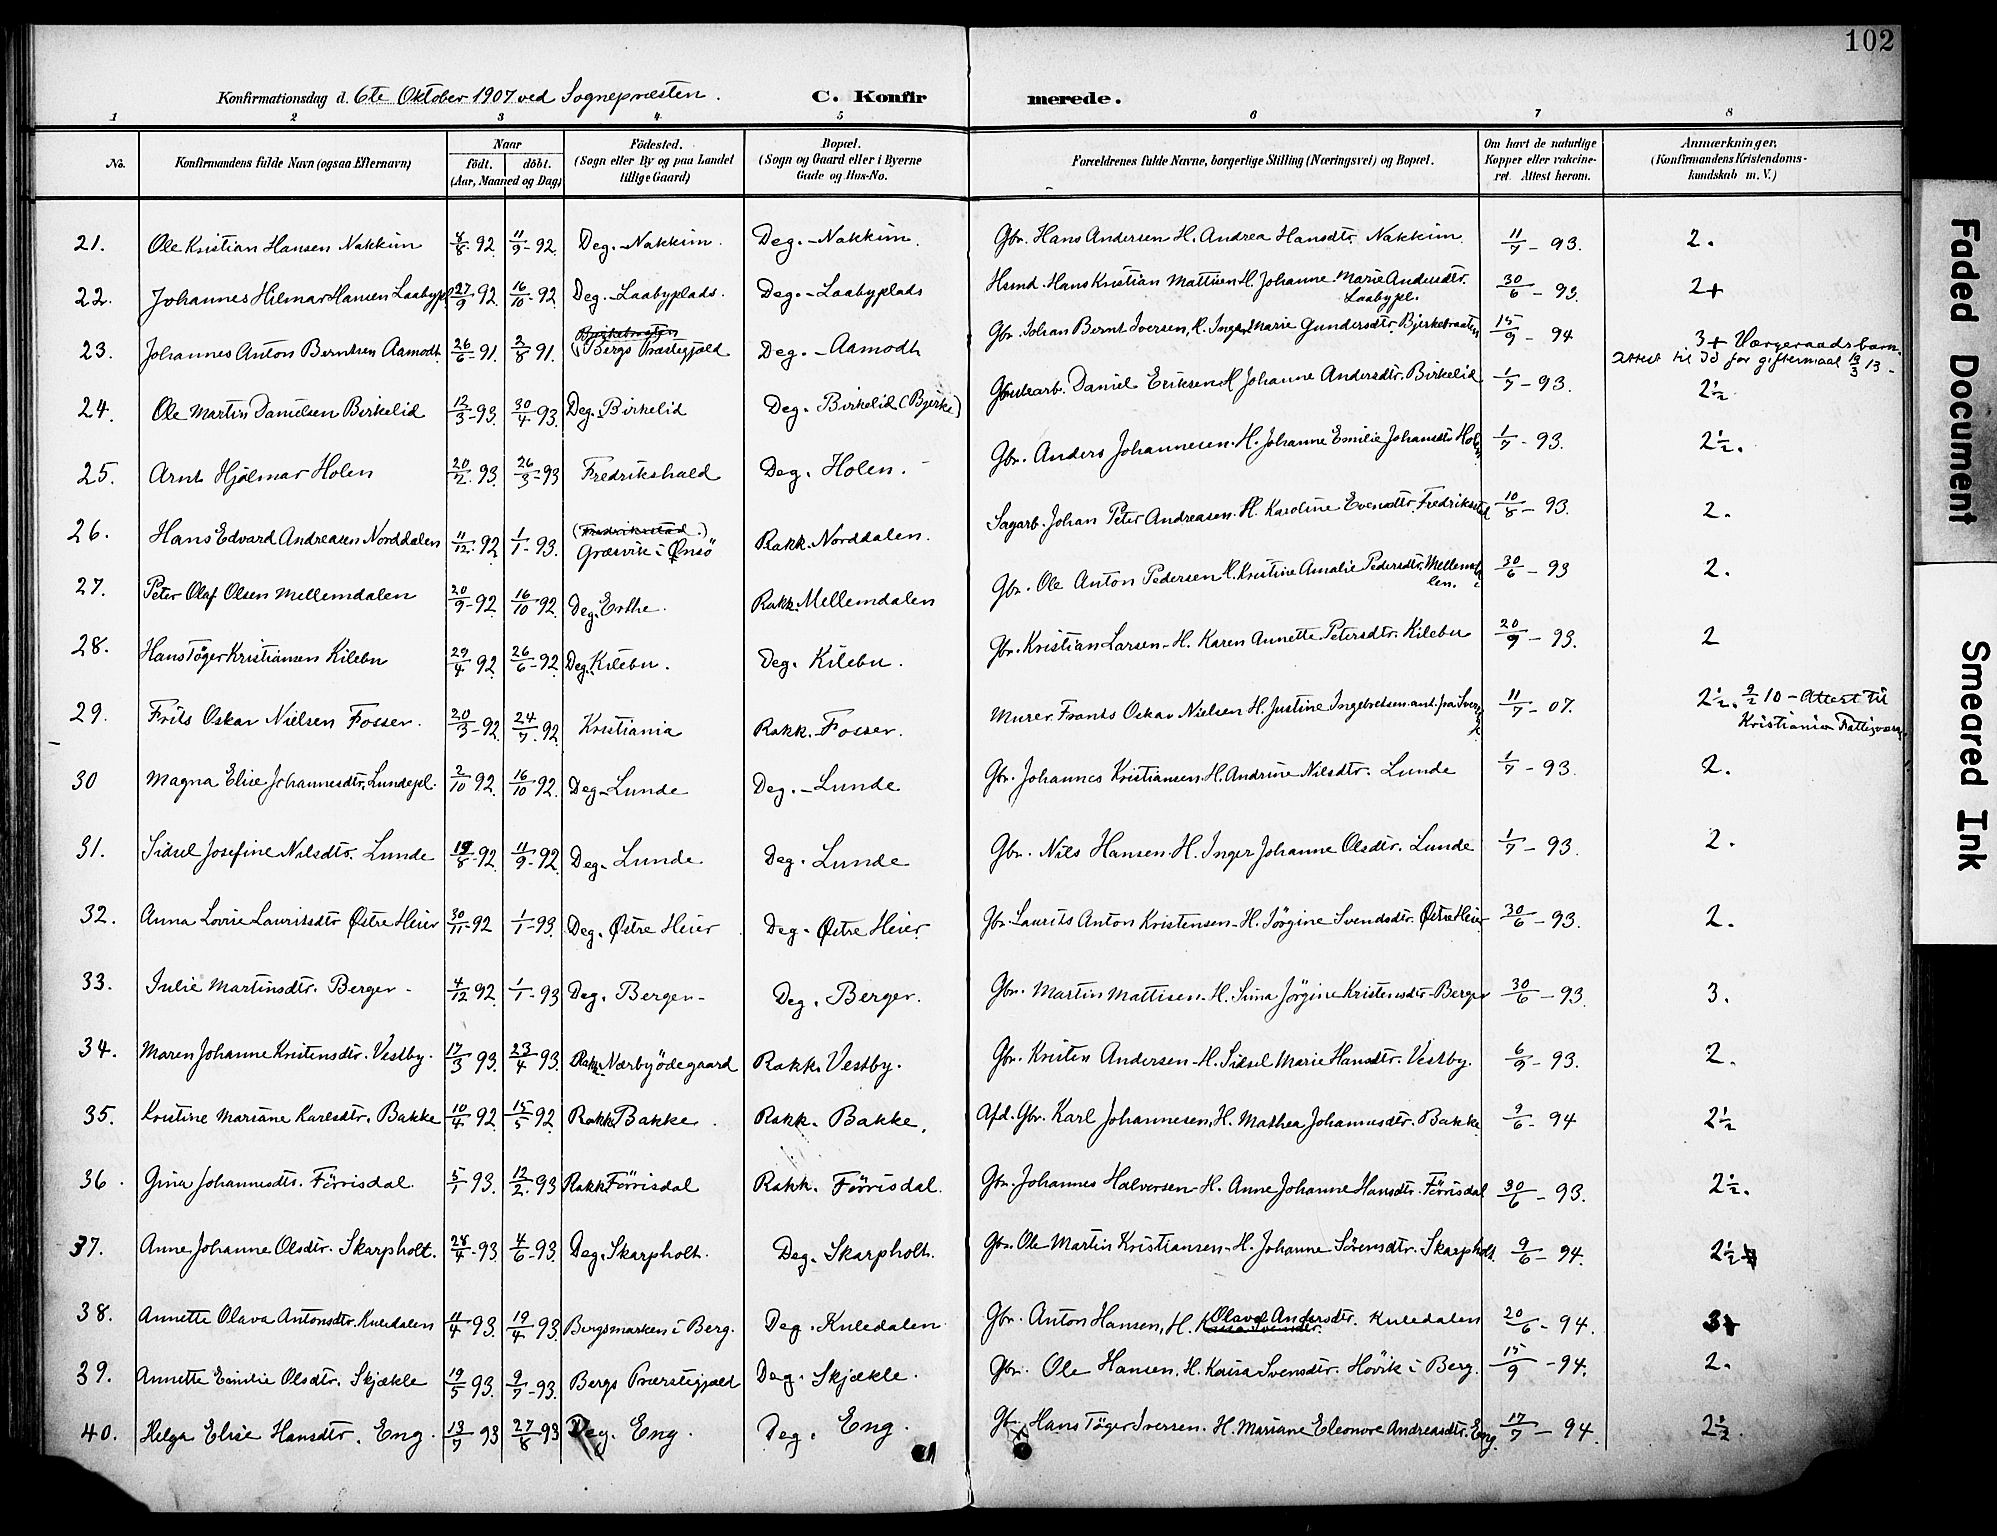 102
Konfirmationsdag d. 6te Oktober 1907 ved Sognepræsten. C. Konfirmerede.
1 2 3 4 5 6 7 8
No. Konfirmandens fulde Navn (ogsaa Efternavn) Naar født. døbt. (Aar, Maaned og Dag) Fødested. (Sogn eller By og paa Landet tillige Gaard) Bopæl. (Sogn og Gaard eller i Byerne Gade og Hus-No. Forældrenes fulde Navne, borgerlige Stilling (Næringsvei) og Bopæl. Om havt de naturlige Kopper eller vakcineret. Attest herom. Anmærkninger, (Konfirmandens Kristendomskundskab m. V.)
21. Ole Kristian Hansen Nakkim 4/8-92 11/9-92. Deg.-Nakkim. Deg.-Nakkim. Gbr. Hans Andersen H. Andrea Hansdtr. Nakkim. 11/7-93. 2.
22. Johannes Hilmar Hansen Laabypl. 27/9 92. 16/10-92. Deg.-Laabyplads. Deg.-Laabyplads Hsmd. Hans Kristian Mattisen H. Johanne Marie Andersdtr. Laabypl. 30/6-93. 2+
23. Johannes Anton Berntsen Aamodt. 26/6-91. 2/8 91. Bergs Præstegjæld Deg.-Aamodt Gbr. Johan Bernt Iversen, H. Inger Marie Gundersdtr. Bjerkebraaten 15/9-94 3+ Værgeraadsbarn.
Attest til Dd for giftermaal 19/3 13-
24. Ole Martin Danielsen Birkelid 12/3-93. 30/4-93. Deg. Birkelid Deg. Birkelid (Bjerke) Daniel Eriksen H. Johanne Andersdtr. Birkelid 1/7-93. 2½.
25. Arnt Hjalmar Holen 20/2-93. 26/3-93 Fredrikshald Deg. Holen. Gbr. Anders Johannesen. H. Johanne Emilie Johansdtr. Holen 1/7-93. 2½.
26. Hans Edvard Andreasen Norddalen 11/12-92. 1/1-93. (Fredriksstad.) Græsvik i Ønsö Rakk. Norddalen. Sagarb. Johan Peter Andreasen. H. Karoline Evensdtr. Fredriksstad 10/8-93. 2.
27. Peter Olaf Olsen Mellemdalen 20/9-92. 16/10 92. Deg. Erthe. Rakk. Mellemdalen Gbr. Ole Anton Pedersen H. Kristine Amalie Pedersdtr. Mellemdalen. 30/6-93 2.
28. Hans Töger Kristiansen Kilebu 29/4 92. 26/6-92. Deg. Kilebu. Deg. Kilebu. Gbr. Kristian Larsen-H. Karen Annette Petersdtr. Kilebu 20/9-93. 2
29. Frits Oskar Nielsen Fosser. 20/3-92. 24/7. 92. Kristiania Rakk. Fosser. Murer. Frants Oskar Nielsen H. Justine Ingebretsen 11/7-07. 2½. 9/2 10-Attest til
Kristiania
30 Magna Elise Johannesdtr. Lundepl. 2/10 92. 16/10-92. Deg-Lunde Deg.-Lunde Gbr. Johannes Kristiansen. H. Andrine Nilsdtr. Lunde 1/7-93. 2.
31. Sidsel Josefine Nilsdtr. Lunde 19/8-92. 11/9-92. Deg. Lunde Deg. Lunde Gbr. Nils Hansen. H. Inger Johanne Olsdtr. Lunde 1/7-93. 2.
32. Anna Lovise Lauritsdtr Østre Heier 30/11-92 1/1-93. Deg. Østre Heier Deg. Østre Heier. Gbr. Laurits Anton Kristensen-H. Jörgine Svendsdtr. Østre Heier 30/6-93. 2.
33. Julie Martinsdtr. Berger- 4/12 92. 1/1-93 Deg. Berger- Deg. Berger. Gbr. Martin Mattisen-H. Sina Jörgine Kristensdtr-Berger 30/6-93. 3.
34. Maren Johanne Kristensdtr. Vestby. 17/3 93. 23/4 93. Rakk. Nærbyödegaard Rakk. Vestby. Gbr. Kristen Andersen-H. Sidsel Marie Hansdtr. Vestby. 6/9-93. 2.
35. Kristine Mariane Karlsdtr. Bakke 10/4 92. 15/5 92. Rakk. Bakke. Rakk. Bakke. Afd. Gbr. Karl Johannesen. H. Mathea Johannesdtr. Bakke 9/6-94 2½
36. Gina Johannesdtr. Förrisdal. 5/1 93. 12/2. 93 Rakk. Förrisdal Rakk. Förrisdal. Gbr. Johannes Halversen-H. Anne Johanne Hansdtr. Förrisdal 30/6-93. 2½.
37. Anne Johanne Olsdtr. Skarpholt. 28/4-93. 4/6-93. Deg. Skarpholt. Deg. Skarpholt. Gbr. Ole Martin Kristiansen-H. Johanne Sörensdtr. Skarpholt 9/6-94. 2½
38. Annette Olava Antonsdtr. Kuledalen 11/4 93. 19/4 93. Bergsmarken i Berg. Deg. Kuledalen Gbr. Anton Hansen, H. Olava Andersdtr. Kuledalen 20/6-94. 3
39. Annette Emilie Olsdtr. Skjækle 19/5 93. 9/7-93. Bergs Præstegjæld Deg. Skjækle. Gbr. Ole Hansen. H. Kaisa Svensdtr. Hövik i Berg. 15/9-94. 2.
40. Helga Elise Hansdtr. Eng. 13/7 93 27/8 93 Deg. Eng. Deg. Eng. Gbr. Hans Töger Iversen. H. Mariane Eleonore Andreasdtr. Eng. 17/7-94. 2½.
Faded Document
Smeared Ink